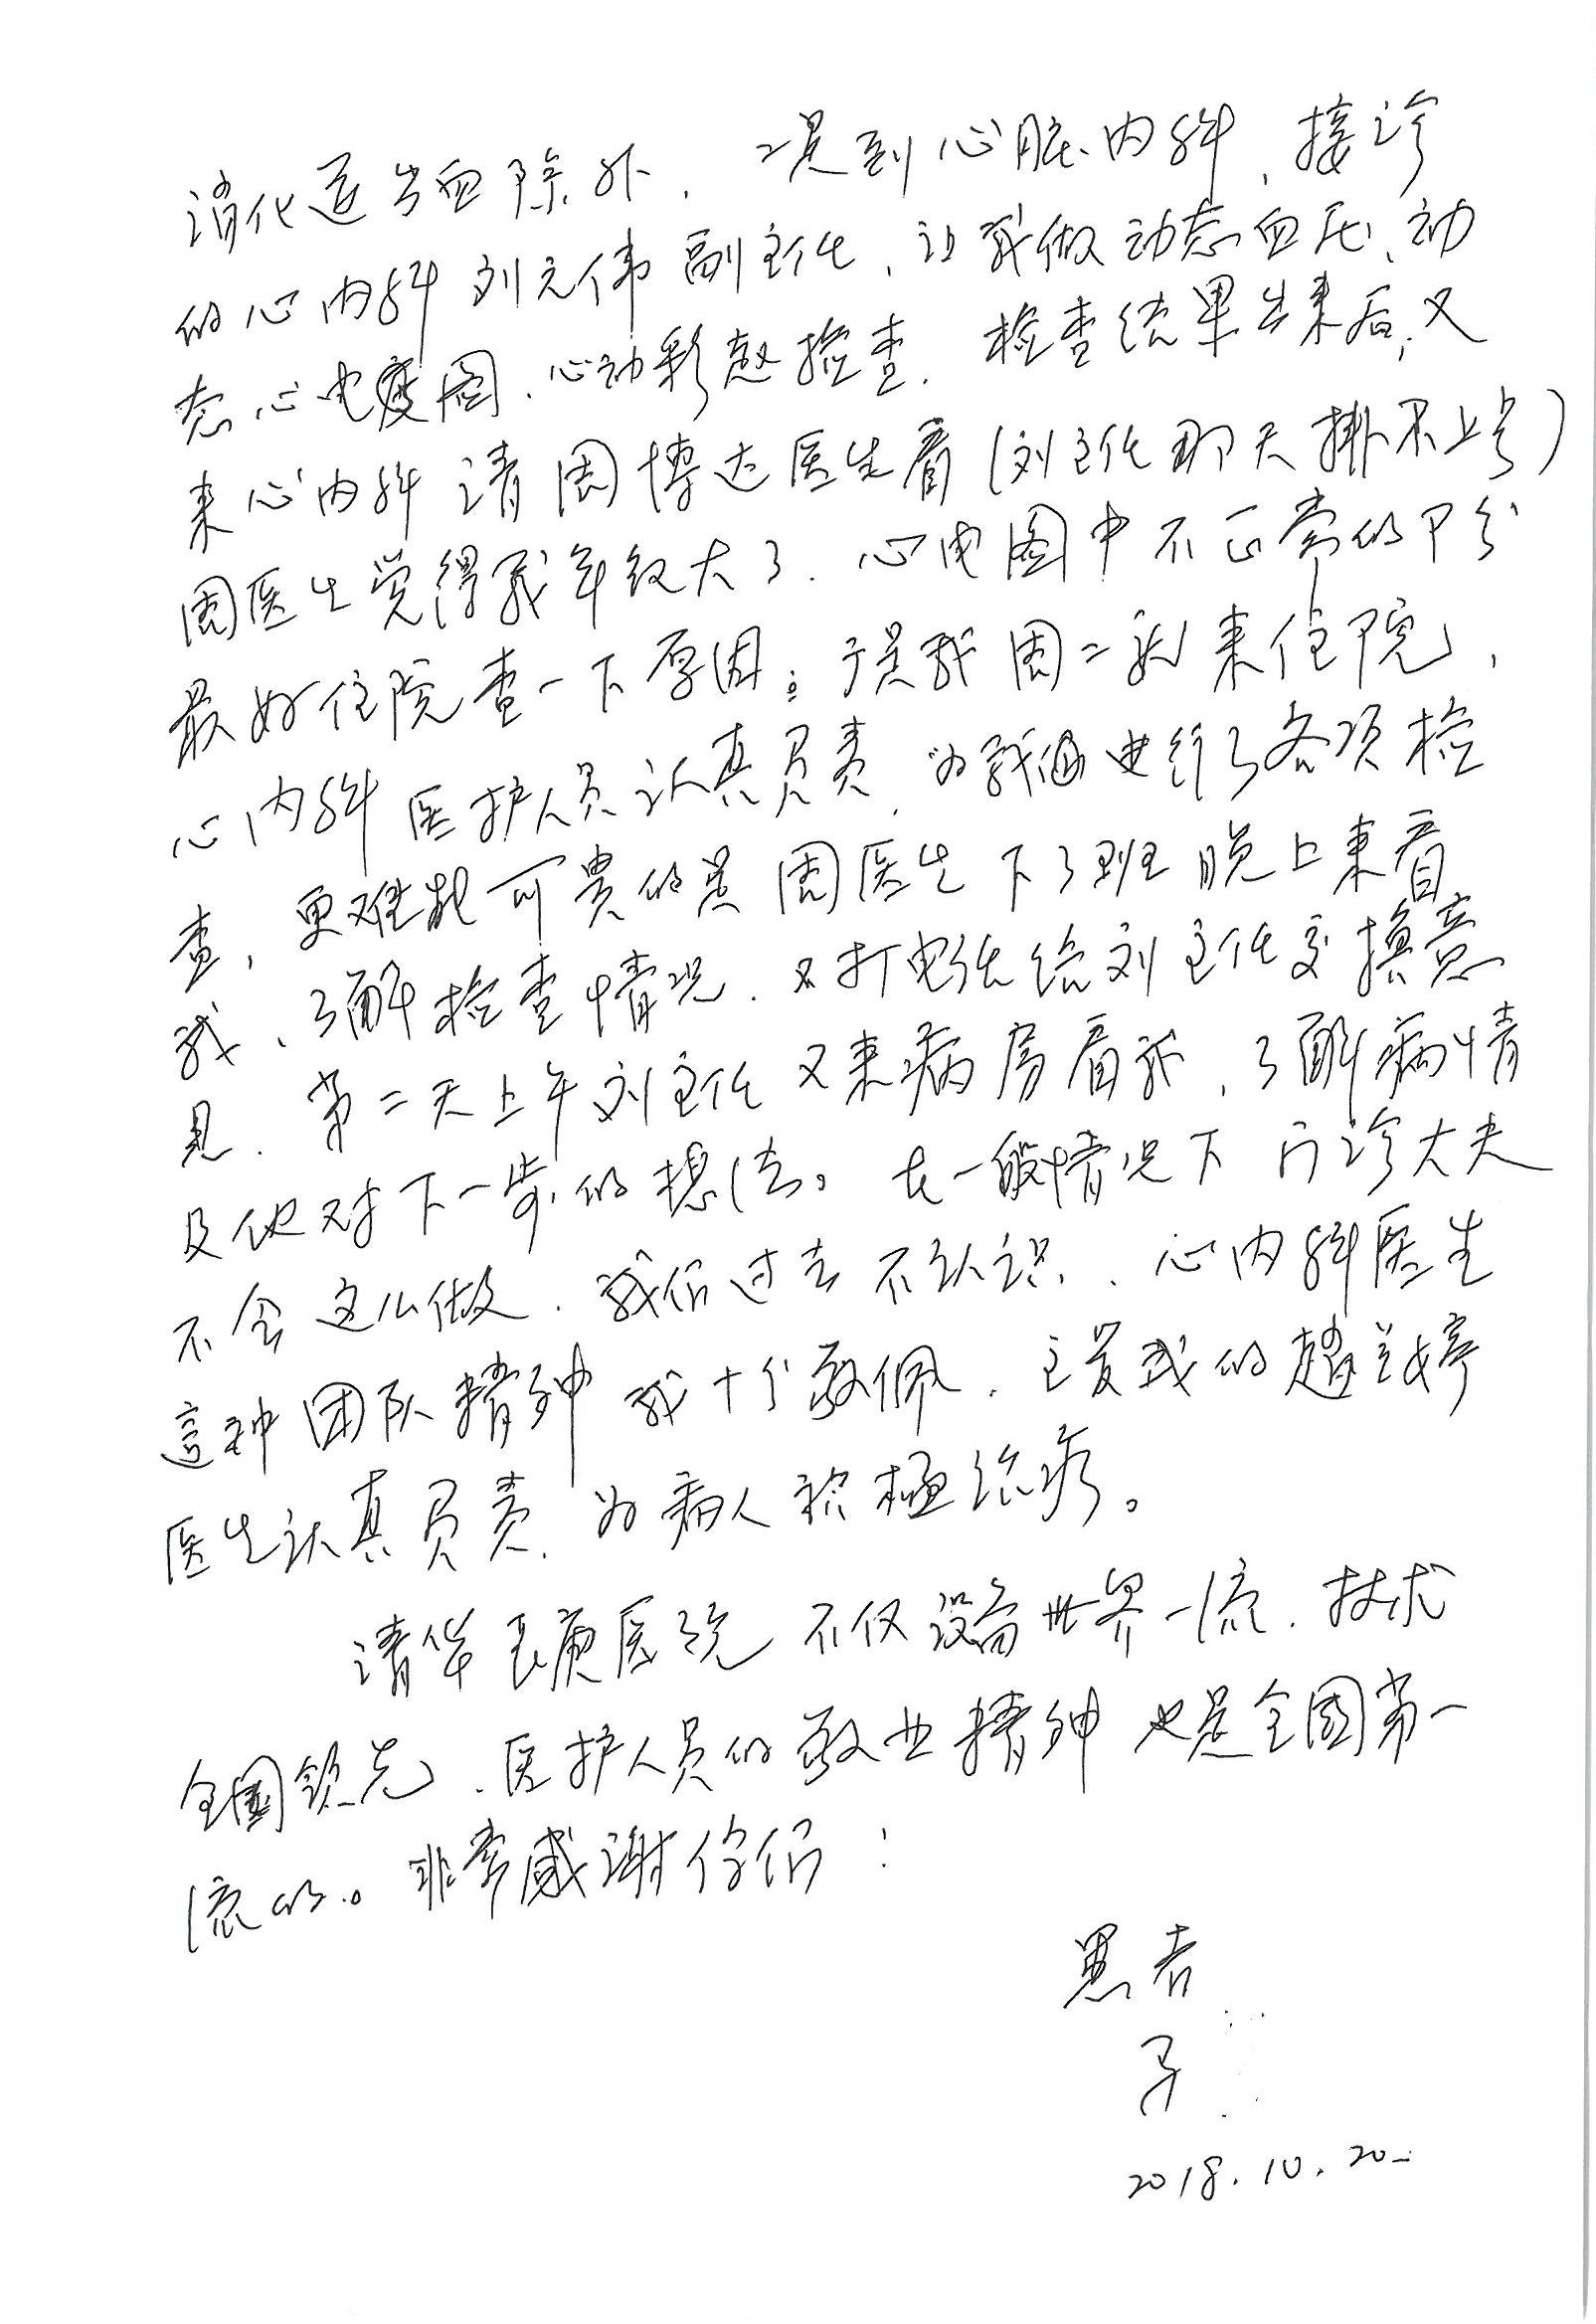 消化道出血除外，二是到心脏内科，接诊
的心内科刘元伟副主任，让我做动态血压、动
态心电图、心动彩超检查，检查结果出来后，又
来心内科请周博达医生看（刘主任那天排不上号）
周医生觉得我年纪大了，心电图中不正常的部分
最好住院查一下原因；于是我周二就来住院，
心内科医护人员认真负责，为我进行了各项检
查，更难能可贵的是周医生下了班晚上来看
我、了解检查情况，又打电话给刘主任交换意
见，第二天上午刘主任又来病房看我，了解病情
及他对下一步的想法。在一般情况下门诊大夫
不会这么做，我们过去不认识，心内科医生
这种团队精神我十分敬佩，主管我的赵兰婷
医生认真负责，为病人积极治疗。
清华长庚医院不仅设备世界一流，技术
全国领先，医护人员的敬业精神也是全国第一
流的。非常感谢你们！
患者
2018.10.20